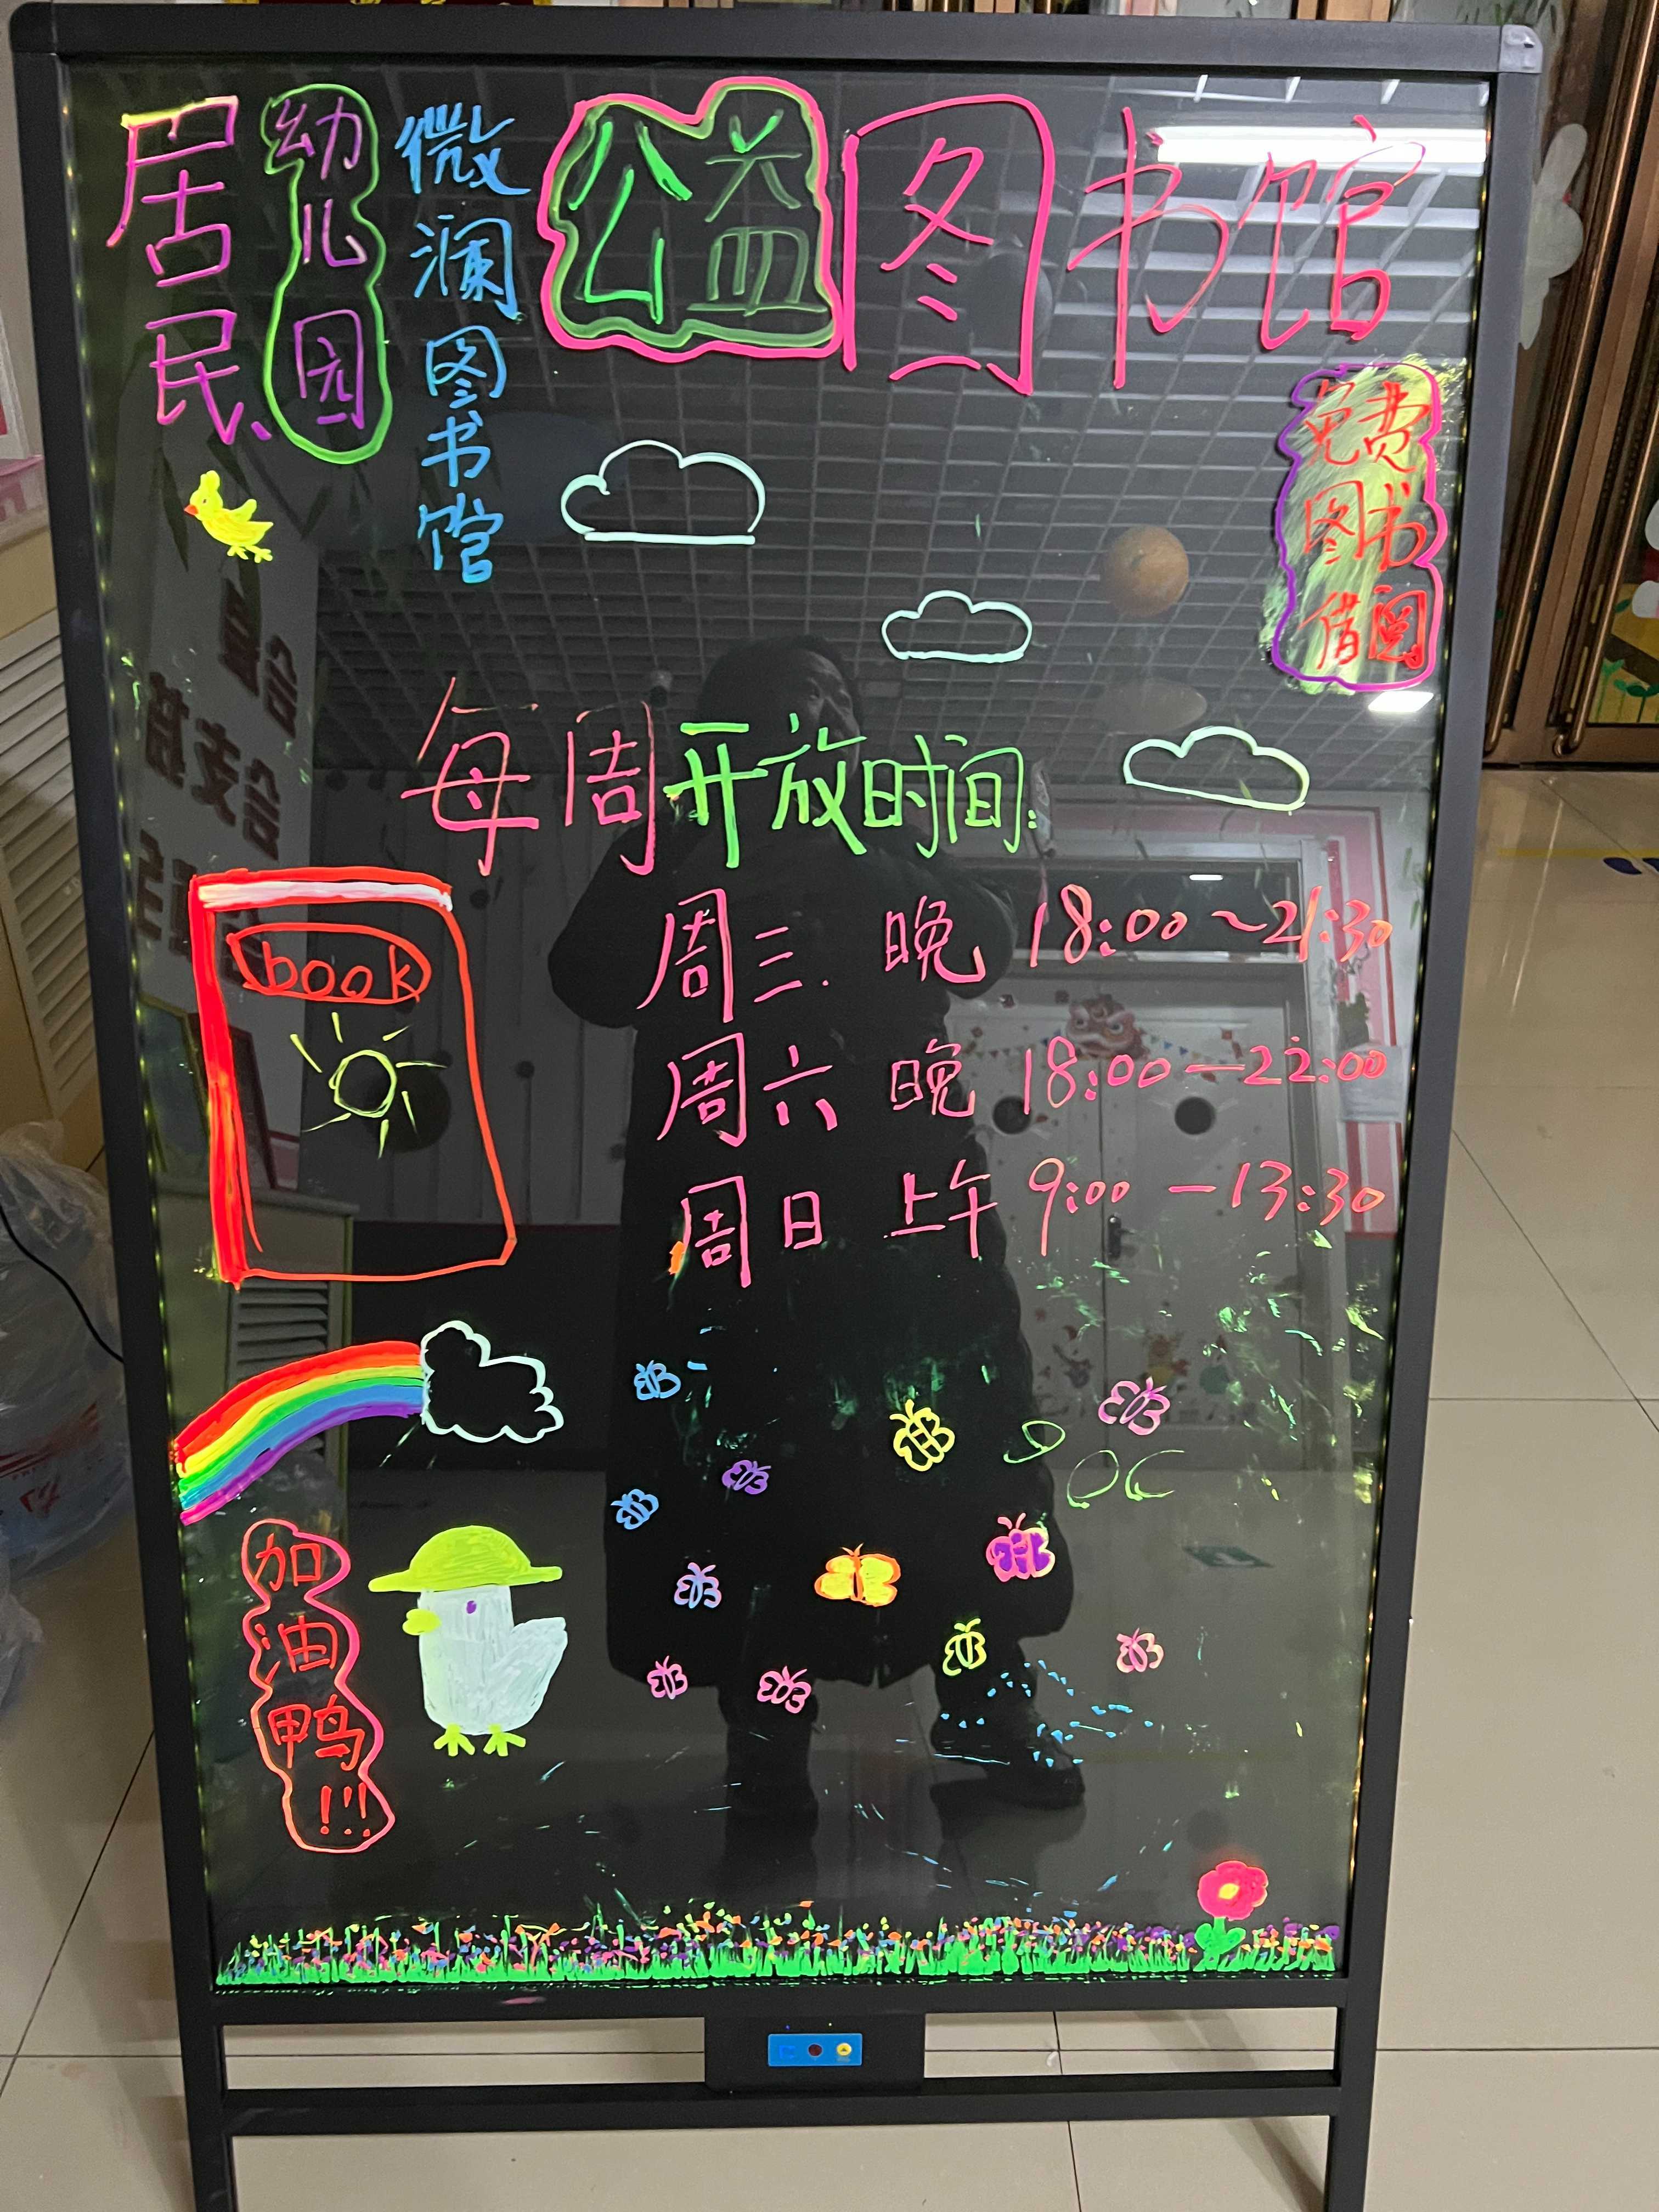 居民、
幼儿园
微澜图书馆
公益图书馆
免费
图书
借阅
每周开放时间:
周三. 晚 18:00~21:30
周六 晚 18:00—22:00
周日 上午 9:00—13:30
book
加油鸭!!!